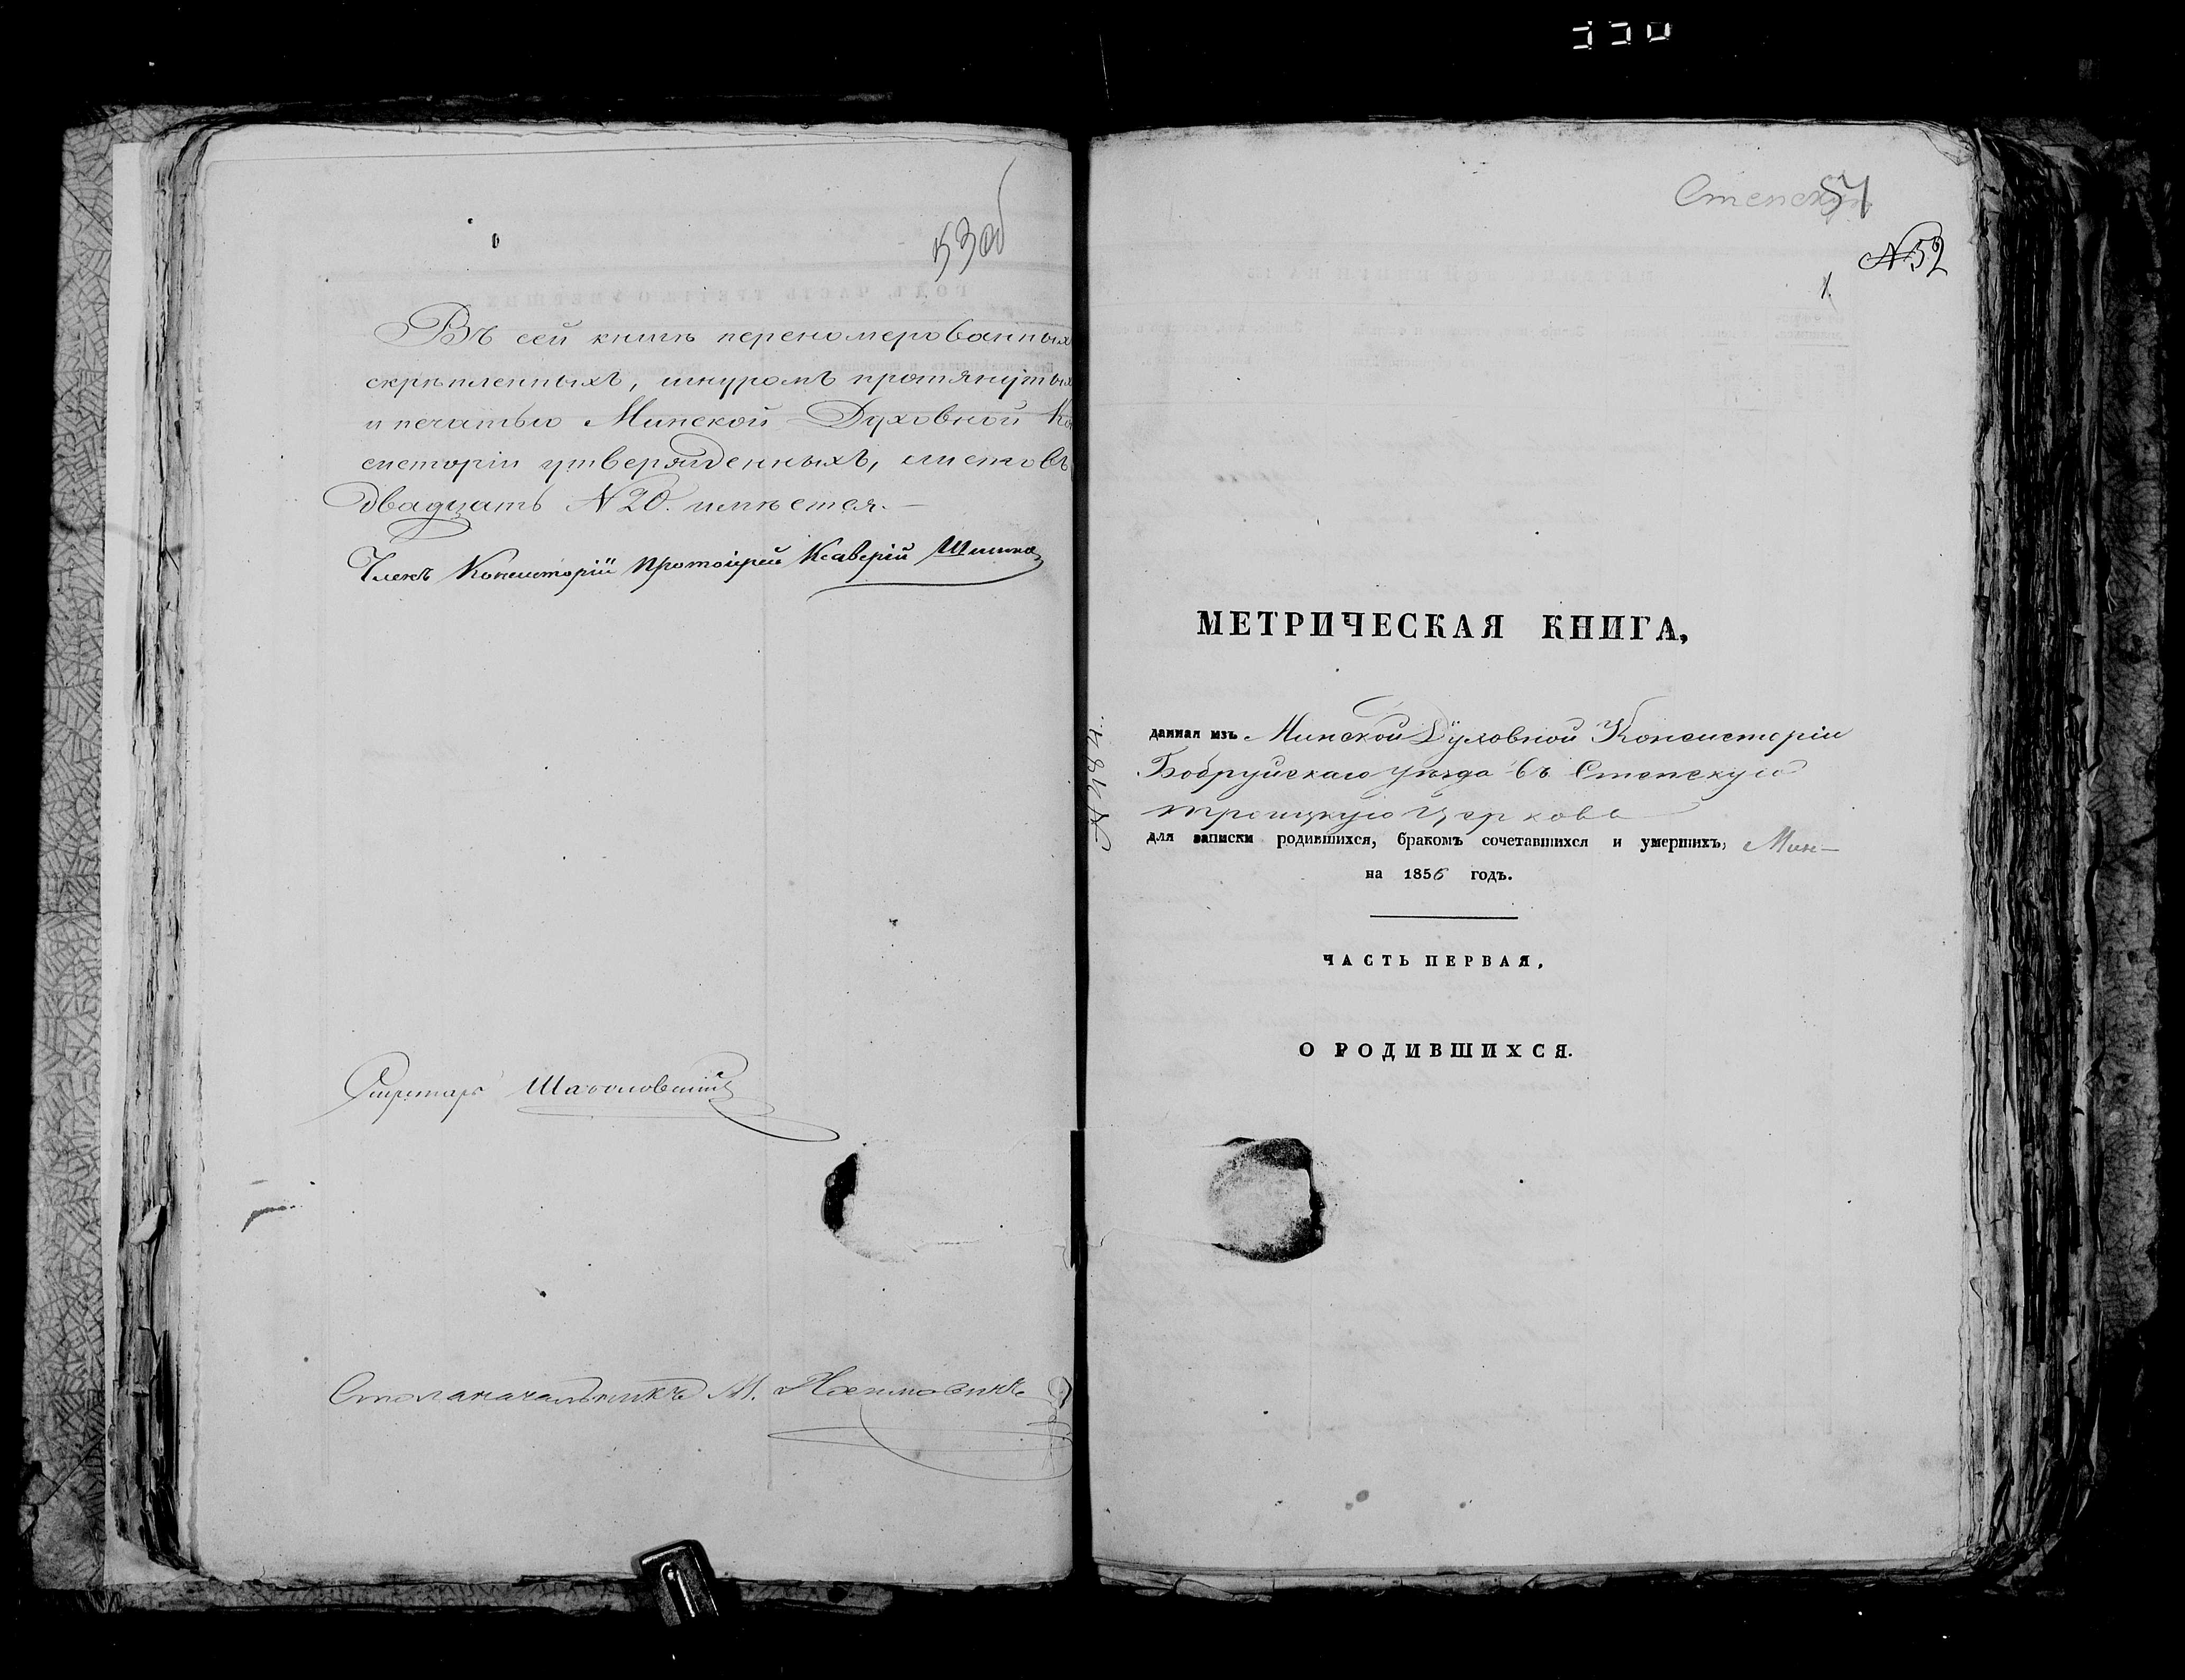 53об
Въ сей книгѣ переномерованныхъ
скрѣпленныхъ, шнуромъ протянутыхъ
и печатью Минской Духовной Кон
систоріи утвержденныхъ, листовъ
двадцать N 20. имѣется.
Членъ Консисторіи Протоіерей Ксаверій
Секретарь
Столоначальникъ М.
Степская
54
№ 52
1.
МЕТРИЧЕСКАЯ КНИГА,
данная изъ Минской Духовной Консисторіи
Бобруйскаго уѣзда въ Степскую
троицкую Церковь
для записки родившихся, бракомъ сочетавшихся и умершихъ,
на 1856 годъ.
ЧАСТЬ ПЕРВАЯ,
О РОДИВШИХСЯ.